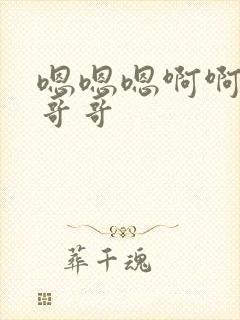 嗯嗯嗯啊啊
哥哥
葬千魂